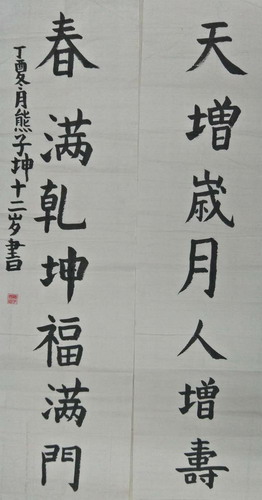 天增歲月人增壽
春满乾坤福满門
丁酉冬月熊子坤十二岁書